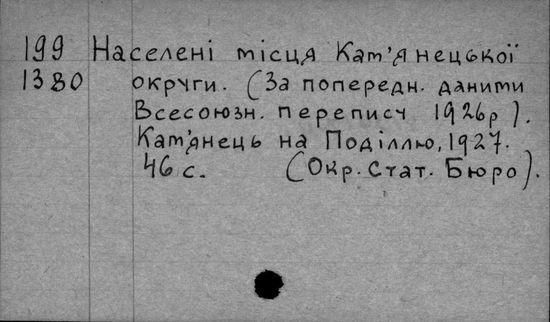 199 Населені місця Кам'янецької
1380 округи. (За попередн. даними
Всесоюзн. перепису 1926р).
Кам'янець на Поділлю, 1927.
46 с. (Окр. Стат. Бюро).